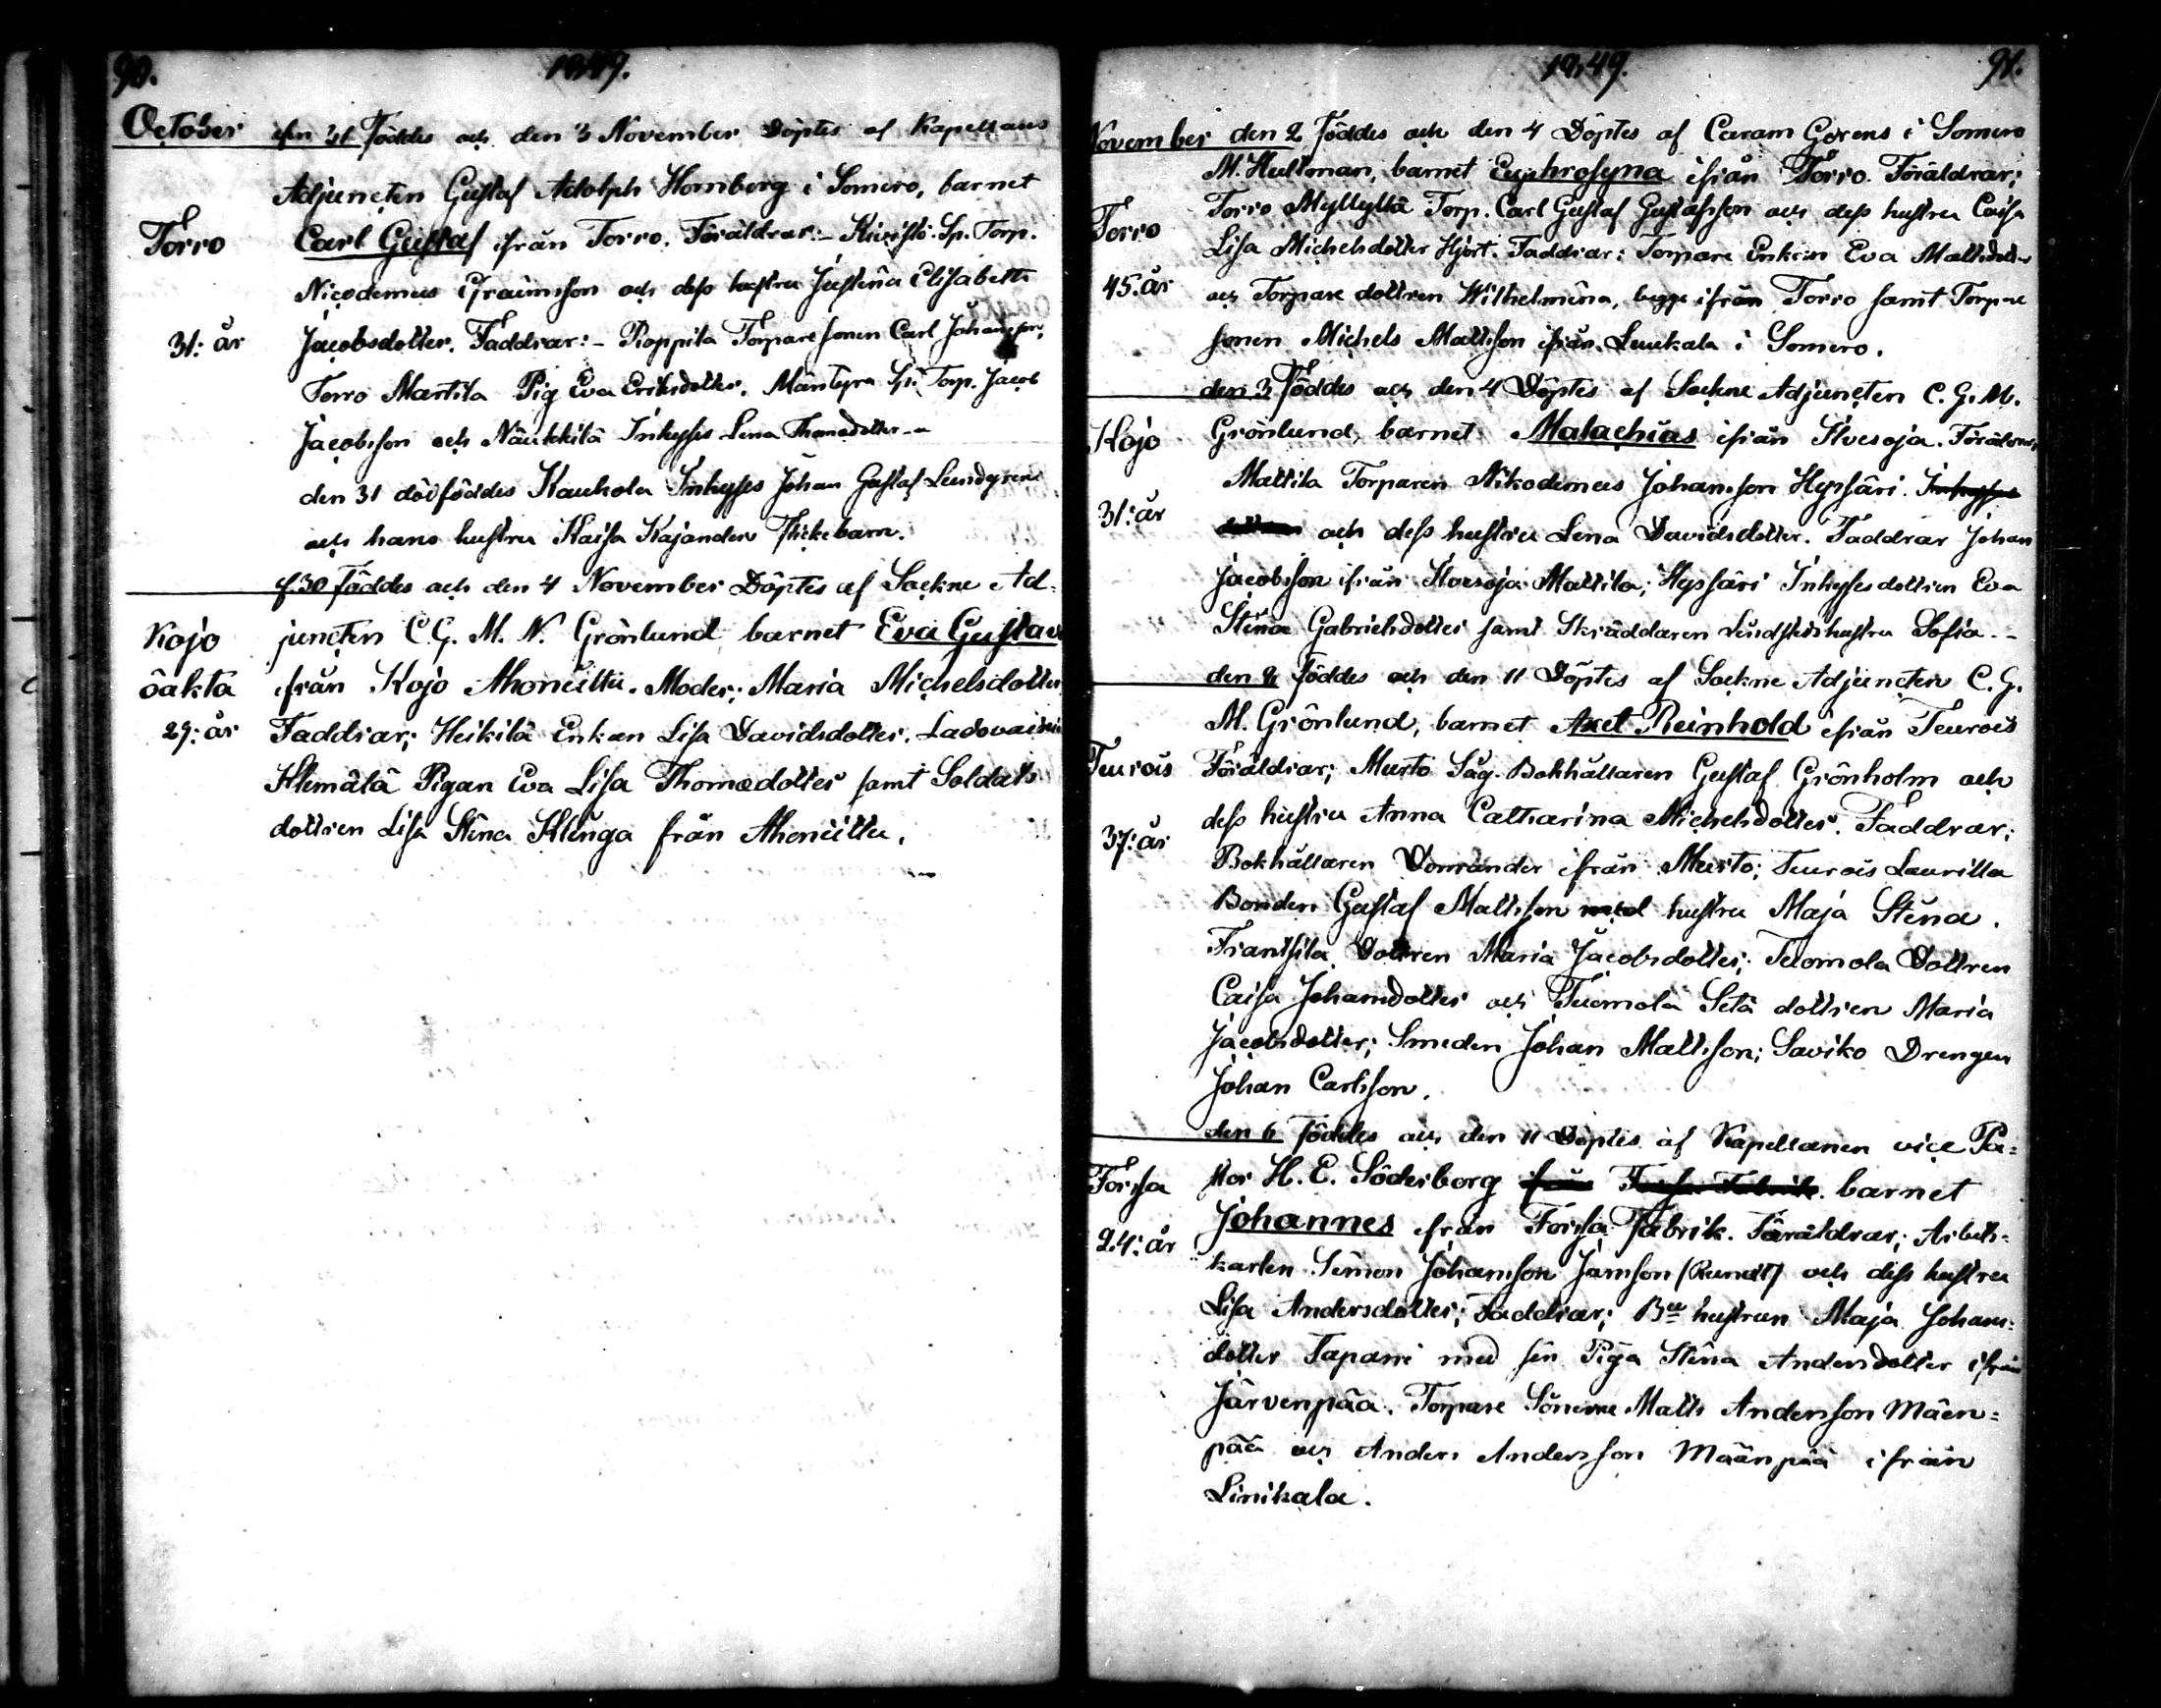 90.
1849.
October
den 31 Föddes och den 3 November Döptes af Kapellans
Adjuncten Gustaf Adolph Hornborg i Somero, barnet
Torro
Carl Gustaf ifrån Torro. Föräldrar:- Kivistö. Sp. Torp.
Nicodemus Efraimsson och dess hustru Justina Elisabeth
31: år
Jacobsdotter. Faddrar:- Pioppila Torpare sonen Carl Johansson,
Torro Martila Pig Eva Eriksdotter. Mäntyra Sp. Torp. Jacob
Jacobsson och Näukkilä Inhyses Lena Thomædotter--
den 31 dödföddes Kauhola Inhyses Johan Gustaf Lundgrens
och hans hustru Kaisa Kajanders flickebarn.
d. 30 Föddes och den 4 November Döptes af Sockne Ad-
Kojo
juncten C. G. M. N. Grönlund barnet Eva Gustava
oäkta
ifrån Kojo Ahoniittu. Moder; Maria Michelsdotter
29: år
Faddrar; Heikilä Enkan Lisa Davidsdotter. Ladovainio
Klemälä Pigan Eva Lisa Thomædotter samt Soldats
dottren Lisa Stina Klinga från Ahoniittu.
1849.
91.
November den 2 Föddes och den 4 Döptes af Caram Gorens i Somero
M. Hultman, barnet Euphrosyna ifrån Torro. Föräldrar;
Torro
Torro Myllyllä Torp. Carl Gustaf Gustafsson och dess hustru Caisa
Lisa Michelsdotter Hjort. Faddrar: Torpare Enkan Eva Mattsdotter
45. år
och Torpare dottren Wilhelmina, begge ifrån Torro samt Torpare
sonen Michels Mattsson ifrån Luukala i Somero.
den 3 Föddes och den 4 Döptes af Sockne Adjuncten C. G. M.
Kojo
Grönlund, barnet Malachias ifrån Ilvesoja. Föräldrar,
Mattila Torparen Nikodemus Johansson Hypsäri.
31: år
och dess hustru Lena Davidsdotter. Faddrar Johan
Jacobsson ifrån Ilvesoja Mattila; Hypsäri Inhyses dottren Eva
Stina Gabrielsdotter samt Skräddaren Lindstets hustru Sofia.--
den 9 Föddes och den 11 Döptes af Sockne Adjuncten C. G.
M. Grönlund, barnet Axel Reinhold ifrån Teurois
Teurois
Föräldrar; Murto Såg. Bokhållaren Gustaf Grönholm och
37: år
dess hustru Anna Catharina Michelsdotter. Faddrar;
Bokhållaren Donrander ifrån Murto; Teurois Laurilla
Bonden Gustaf Mattsson med hustru Maja Stina.
Frantsila Dottren Maria Jacobsdotter; Tuomola Dottren
Caisa Johansdotter och Tuomola Setä dottren Maria
Jacobsdotter; Smeden Johan Mattsson; Saviko Drengen
Johan Carlsson.
den 6 Föddes och den 11 Döptes af Kapellanen vice Pa-
Forssa
stor H. E. Söderborg från Forssa Fabrik. barnet
Johannes ifrån Forssa Fabrik. Föräldrar; Arbets-
24: år
karlen Simon Johansson Jamson (Rundt) och dess hustru
Lisa Andersdotter; Faddrar; Bde hustrun Maja Johans-
dotter Tapani med sin Piga Stina Andersdotter ifrån
Järvenpää. Torpare Sönerne Matts Andersson Mäen-
pää och Anders Andersson Määnpää ifrån
Linikala.